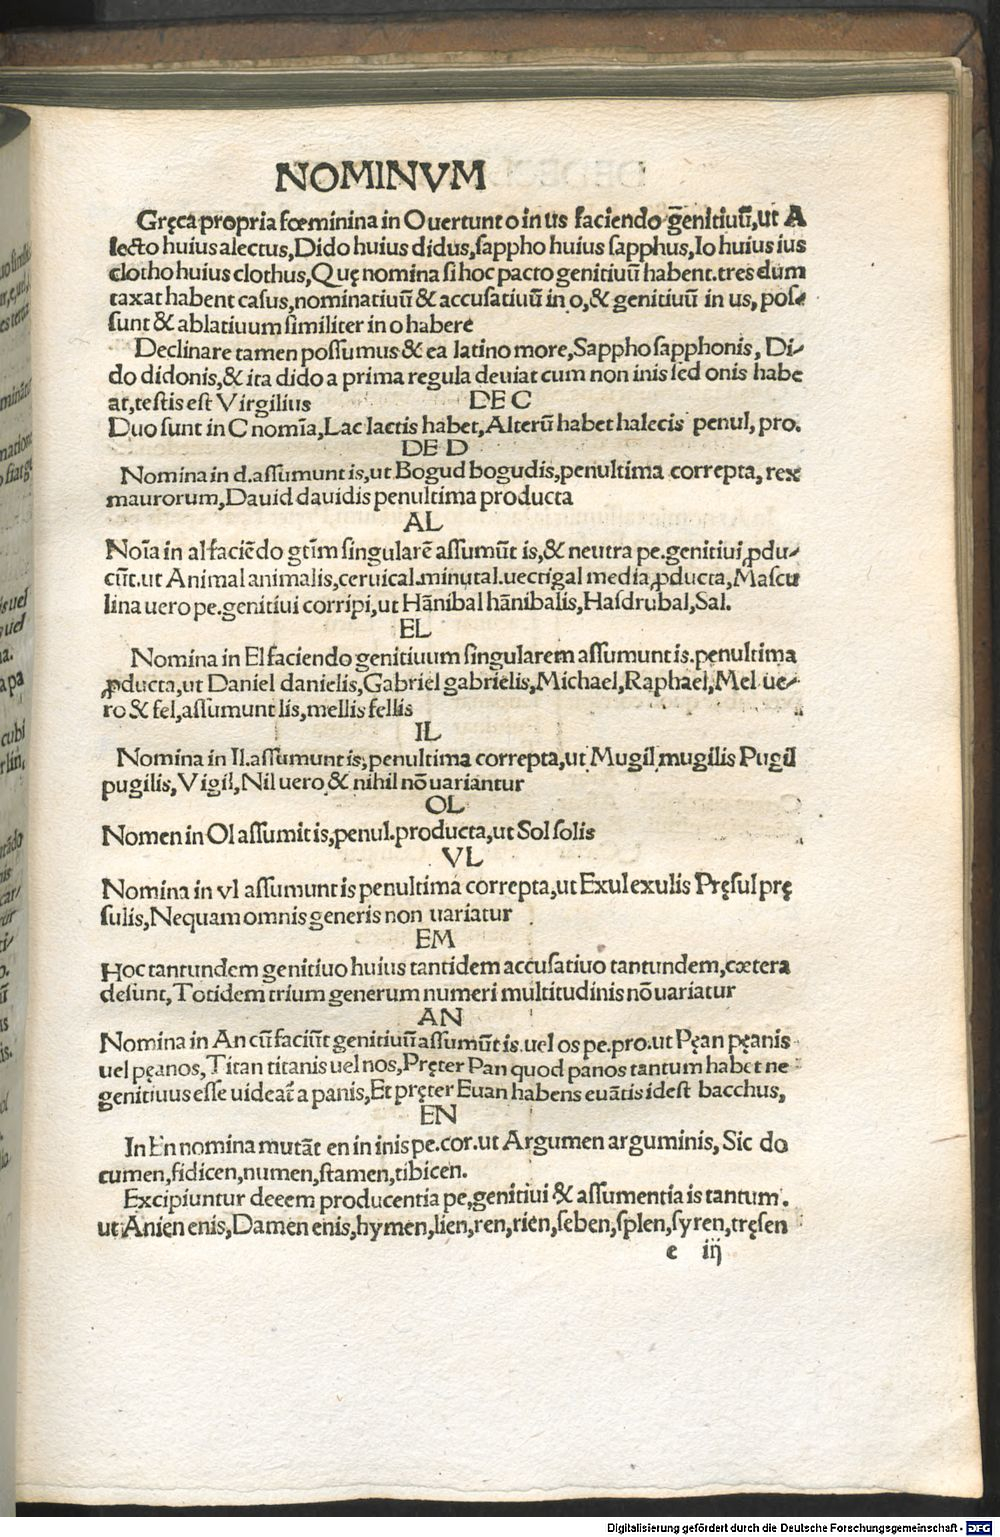 NOMINVM
Gręca propria fœminina in O uertunt o in us faciendo gēnitiuū, ut A
lecto huius alectus, Dido huius didus, sappho huius sapphus, Io huius ius
clotho huius clothus, Quę nomina si hoc pacto genitiuū habent. tres dum
taxat habent casus, nominatiuū & accusatiuū in o, & genitiuū in us, pos-
sunt & ablatiuum similiter in o habere
Declinare tamen possumus & ea latino more, Sappho sapphonis, Di-
do didonis, & ita dido a prima regula deuiat cum non inis sed onis habe
at, testis est Virgilius
DE C
Duo sunt in C nomīa, Lac lactis habet, Alterū habet halecis penul, pro.
DE D
Nomina in d. assumunt is, ut Bogud bogudis, penultima correpta, rex
maurorum, Dauid dauidis penultima producta
AL
Noīa in al faciēdo gtīm singularē assumūt is, & neutra pe. genitiui ꝓdu-
cūt. ut Animal animalis, ceruical. minutal. uectigal media ꝓducta, Mascu
lina uero pe. genitiui corripi, ut Hānibal hānibalis, Hasdrubal, Sal.
EL
Nomina in El faciendo genitiuum singularem assumunt is. penultima
ꝓducta, ut Daniel danielis, Gabriel gabrielis, Michael, Raphael, Mel ue-
ro & fel, assumunt lis, mellis fellis
IL
Nomina in Il. assumunt is, penultima correpta, ut Mugil mugilis Pugil
pugilis, Vigil, Nil uero & nihil nō uariantur
OL
Nomen in Ol assumit is, penul. producta, ut Sol solis
VL
Nomina in vl assumunt is penultima correpta, ut Exul exulis Pręsul prę
sulis, Nequam omnis generis non uariatur
EM
Hoc tantundem genitiuo huius tantidem accusatiuo tantundem, cœtera
desunt, Totidem trium generum numeri multitudinis nō uariatur
AN
Nomina in An cū faciūt genitiuū assumūt is. uel os pe. pro. ut Pęan pęanis
uel pęanos, Titan titanis uel nos, Pręter Pan quod panos tantum habet ne
genitiuus esse uideat̄ a panis, Et pręter Euan habens euātis idest bacchus,
EN
In En nomina mutāt en in inis pe. cor. ut Argumen arguminis, Sic do
cumen, fidicen, numen, stamen, tibicen.
Excipiuntur decem producentia pe, genitiui & assumentia is tantum.
ut Anien enis, Damen enis, hymen, lien, ren, rien, seben, splen, syren, tręsen
e iij
Digitalisierung gefördert durch die Deutsche Forschungsgemeinschaft - DFG